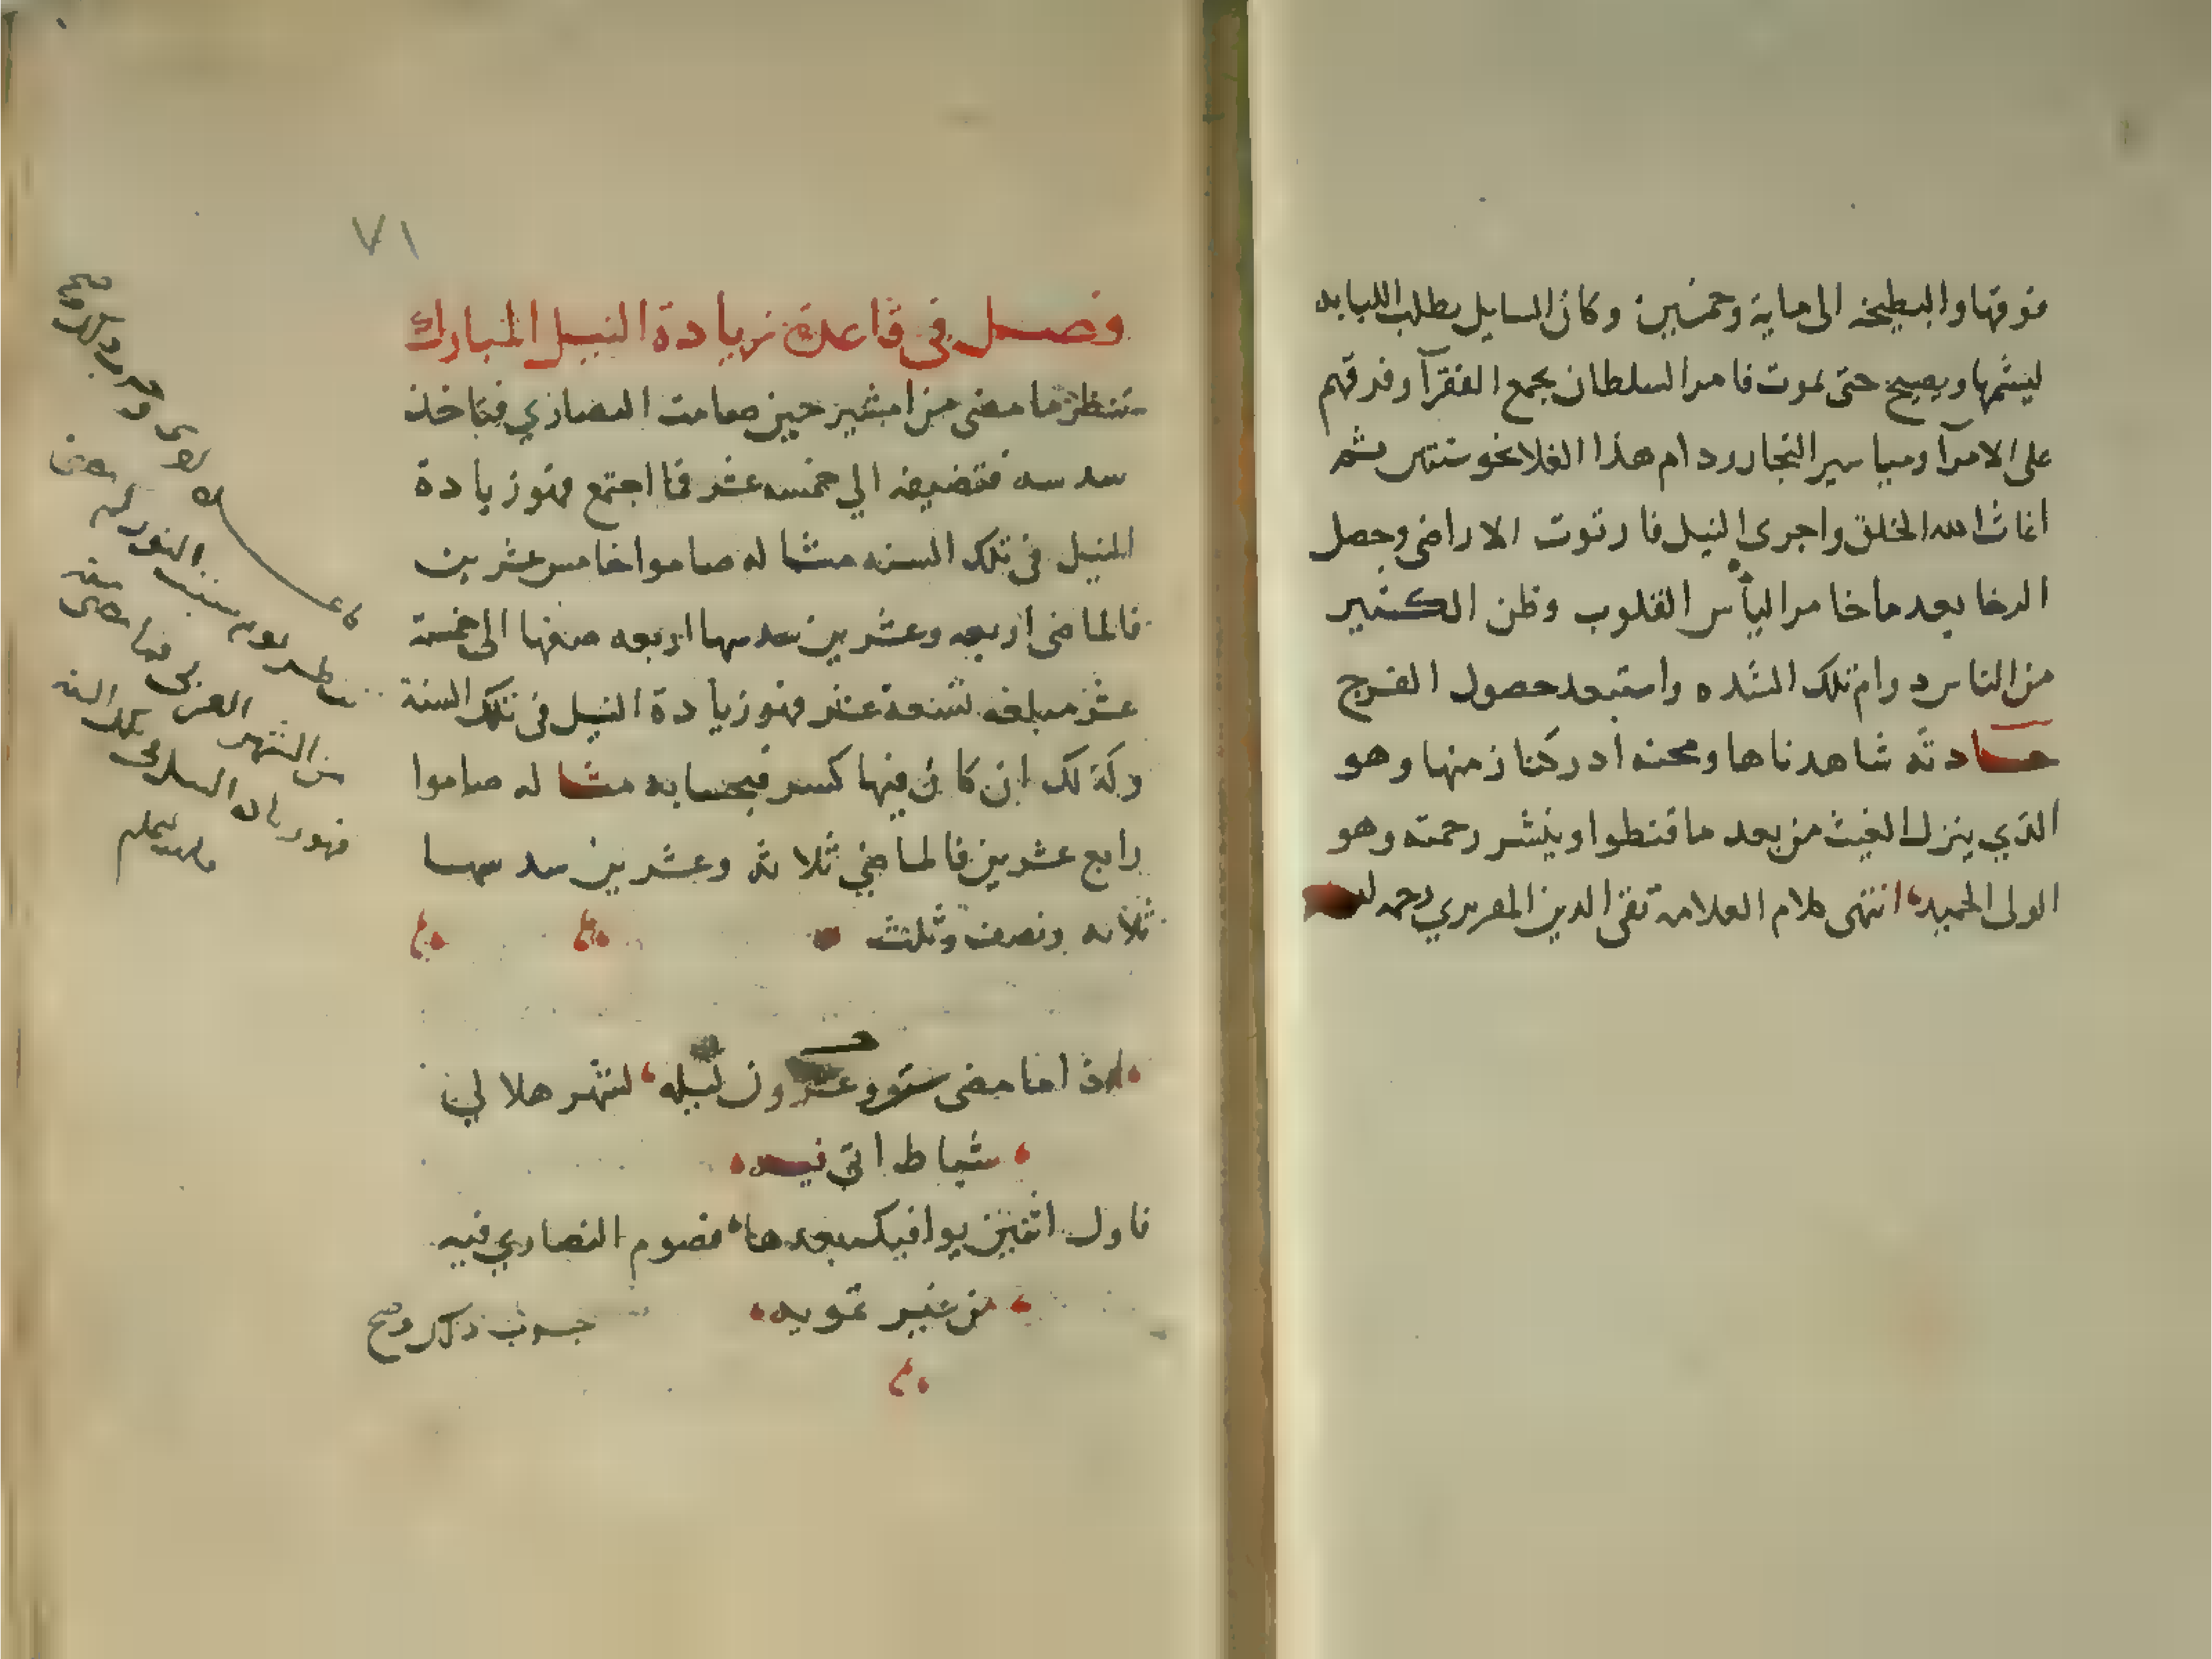 فوقها والبطيخه الى ماية وخمسين وكان السايل يطلب اللبابه
ليشمها ويصيح حتى يموت فامر السلطان بجمع الفقرآ وفرقهم
على الامرآ ومياسير التجار ودام هذا الغلا نحو سنتين ثم
اغاث الله الخلق واجرى النيل فارتوت الاراضى وحصل
الرخا بعد ما خامر اليأس القلوب وظن الكثير
من الناس دوام تلك الشده واستبعد حصول الفرج
حادثه شاهدناها ومحنه ادركنا زمنها وهو
الذي ينزل الغيث من بعد ما قنطوا وينشر رحمته وهو
الولى الحميد انتهى كلام العلامه تقى الدين المقريزي رحمه الله
٧١
فصل في قاعدة زيادة النيل المبارك
تنظر ما مضى من امشير حين صامت النصاري فتاخذ
سدسه فتضيفه الي خمسه عشر فما اجتمع فهو زيادة
النيل في تلك السنه مثاله صاموا خامس عشرين
فالماضى اربعه وعشرين سدسها اربعه ضفها الى خمسة
عشر مبلغه تسعة عشر فهو زيادة النيل في تلك السنة
وكذلك ان كان فيها كسر فبحسابه مثاله صاموا
رابع عشرين فالماضي ثلاثه وعشرين سدسها
ثلاثه ونصف وثلث
اذا ما مضى ست وعشرون ليله لشهر هلالي
شباط اتي
فاول اثنين يوافيك بعدها فصوم النصاري فيه
من غير
وصح
قاعده اخرى
تنظر يوم سبت النور كم مضى
من الشهر العربى فما مضى منه
فهو تلك السنه